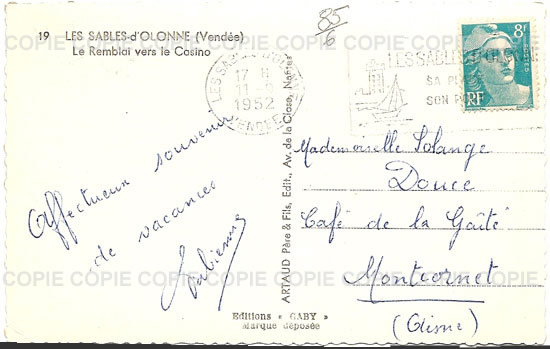 19 LES SABLES-d'OLONNE (Vendée)
Le Remblai vers le Casino
85
6
LES SABLES D'OLONNE
17 H
11 - 8
1952
VENDEE
LES SABLES D'OLONNE
SA PL
SON P
8F
POSTES
RF
Affectueux souvenir
de vacances
Fabienne
ARTAUD Père & Fils, Edit., Av. de la Close, Nantes
Mademoiselle Solange
Douce
"Café de la Gaîté"
Montcornet
(Aisne)
Editions " GABY "
Marque déposée
COPIE COPIE COPIE COPIE COPIE COPIE COPIE
COPIE COPIE COPIE COPIE COPIE COPIE COPIE
COPIE COPIE COPIE COPIE COPIE COPIE COPIE